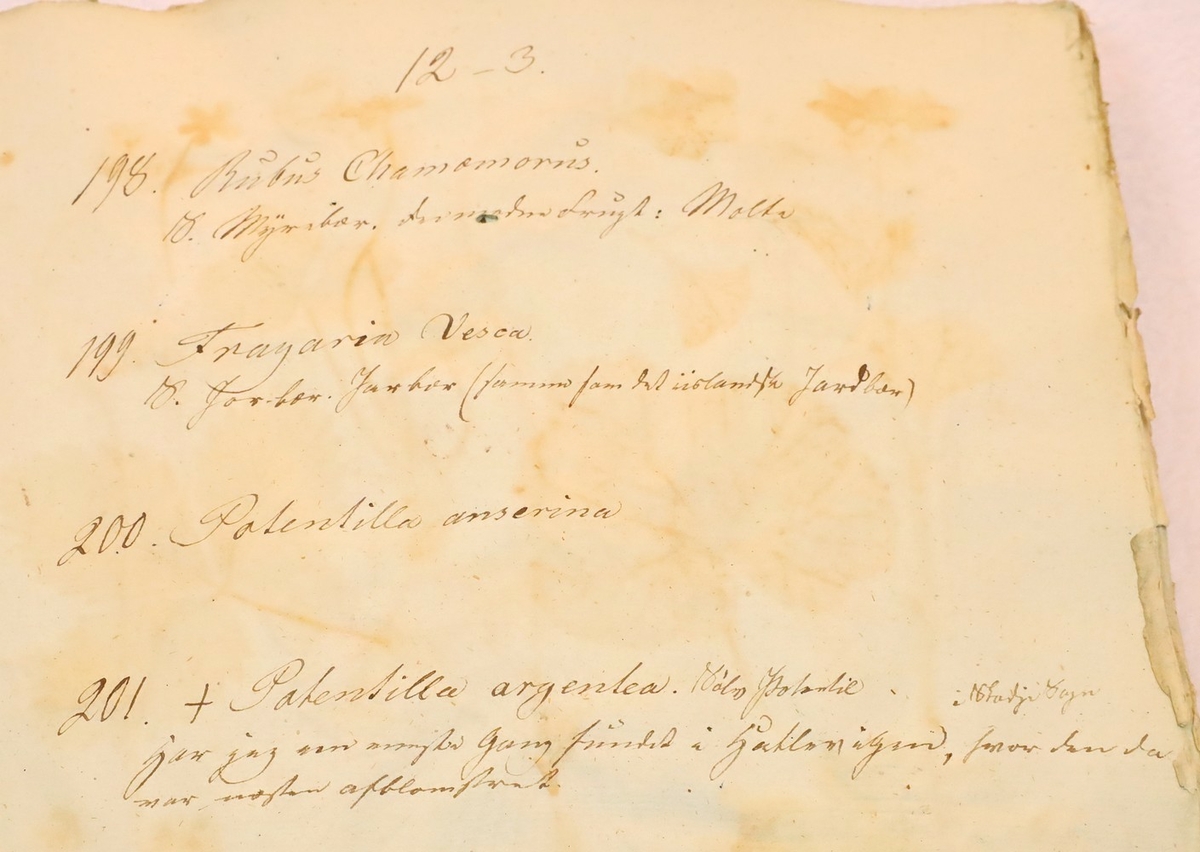 12 - 3.
198. Rubus Chamæmorus.
S. Myrebær. den modne Frugt: Molte
199. Fragaria Vesca.
S. Jorbær. Jarbær (samme som det iislandske Jardbær)
200. Potentilla anserina
201. + Potentilla argentea. Sølv Potentil i Skodje Sogn
Har jeg een eneste Gang fundet i Hatlevigen, hvor den da
var næsten afblomstret.